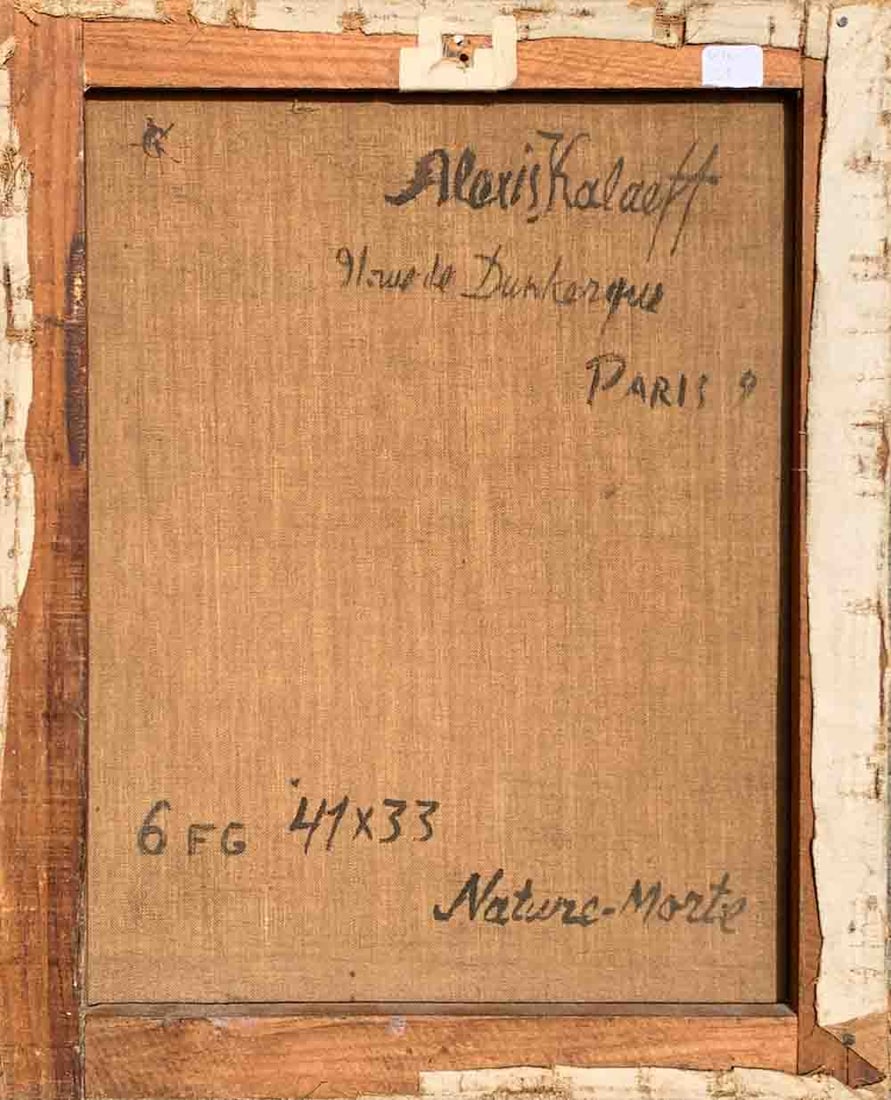 Alexis Kalaeff
91. rue de Dunkerque
PARIS 9
6 FG 41x33
Nature-Morte